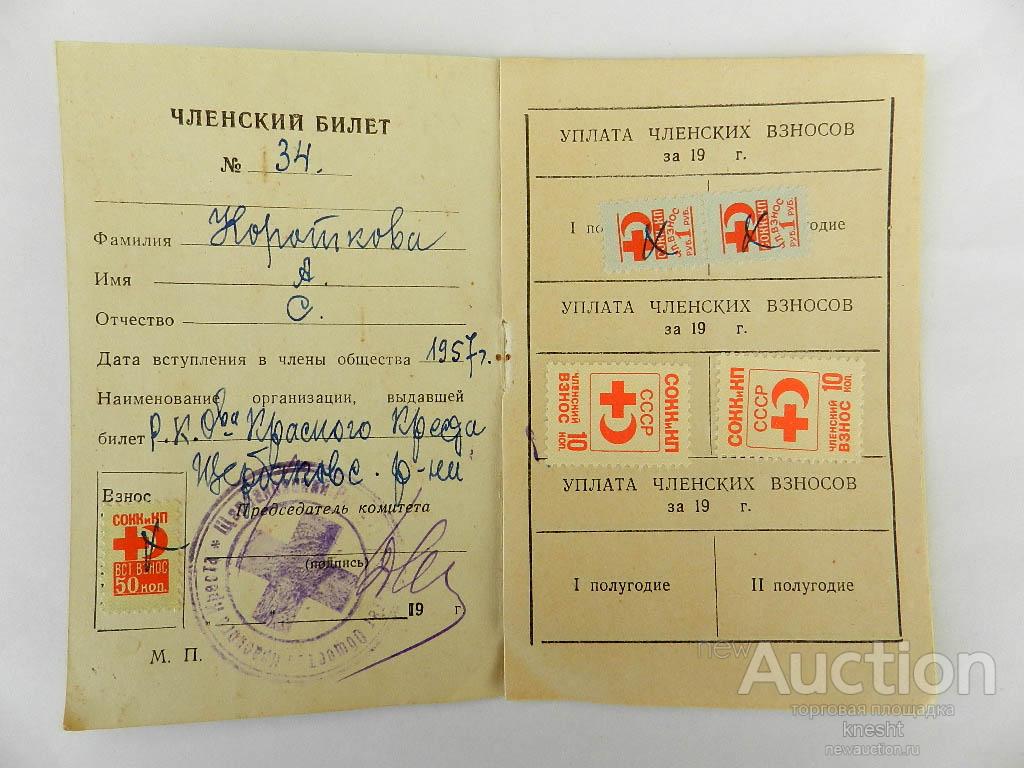 ЧЛЕНСКИЙ БИЛЕТ
№ 34.
Фамилия Короткова
Имя А.
Отчество С.
Дата вступления в члены общества 1957 г.
Наименование организации, выдавшей
билет Р.К. Об-ва Красного Креста
Щербаковс. р-на
Взнос
СОКК и КП
ВСТ. ВЗНОС
50 КОП.
Председатель комитета
(подпись)
19 г
М. П.
УПЛАТА ЧЛЕНСКИХ ВЗНОСОВ
за 19 г.
I по
одие
СОКК и КП
ЧЛ. ВЗНОС
1 РУБ.
СОКК и КП
ЧЛ. ВЗНОС
1 РУБ.
УПЛАТА ЧЛЕНСКИХ ВЗНОСОВ
за 19 г.
СОКК и КП
СССР
ЧЛЕНСКИЙ
ВЗНОС 10 КОП.
СОКК и КП
СССР
ЧЛЕНСКИЙ
ВЗНОС 10 КОП.
УПЛАТА ЧЛЕНСКИХ ВЗНОСОВ
за 19 г.
I полугодие
II полугодие
newAuction
торговая площадка
knesht
newauction.ru